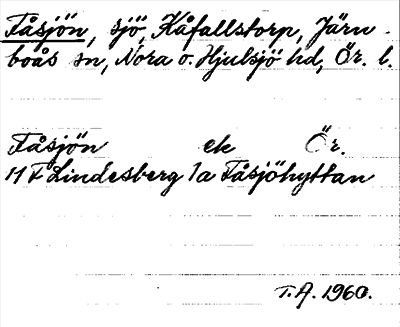 Fåsjön, sjö, Kåfallstorp, Järn-
boås sn, Nora o. Hjulsjö hd, Ör. l.
Fåsjön ek Ör.
11 F Lindesberg 1a Fåsjöhyttan
T.A. 1960.